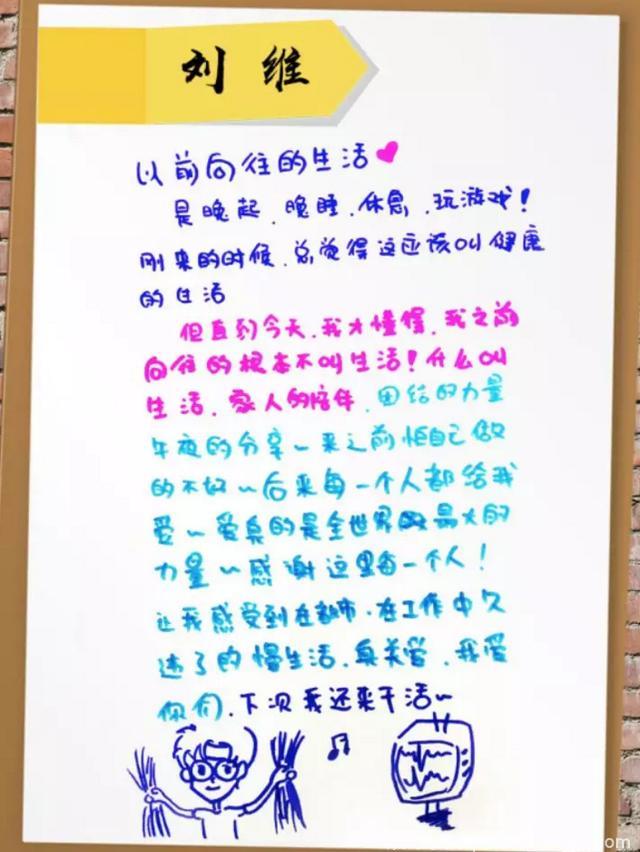 刘维
以前向往的生活
是晚起、晚睡、休息、玩游戏！
刚来的时候、总觉得这应该叫健康
的生活
但直到今天、我才懂得、我之前
向往的根本不叫生活！什么叫
生活、家人的陪伴、团结的力量
午夜的分享～来之前怕自己做
的不好～后来每一个人都给我
爱～爱真的是全世界最大的
力量～感谢这里每一个人！
让我感受到在都市、在工作中久
违了的慢生活、真关爱、我爱
你们、下次我还来干活～